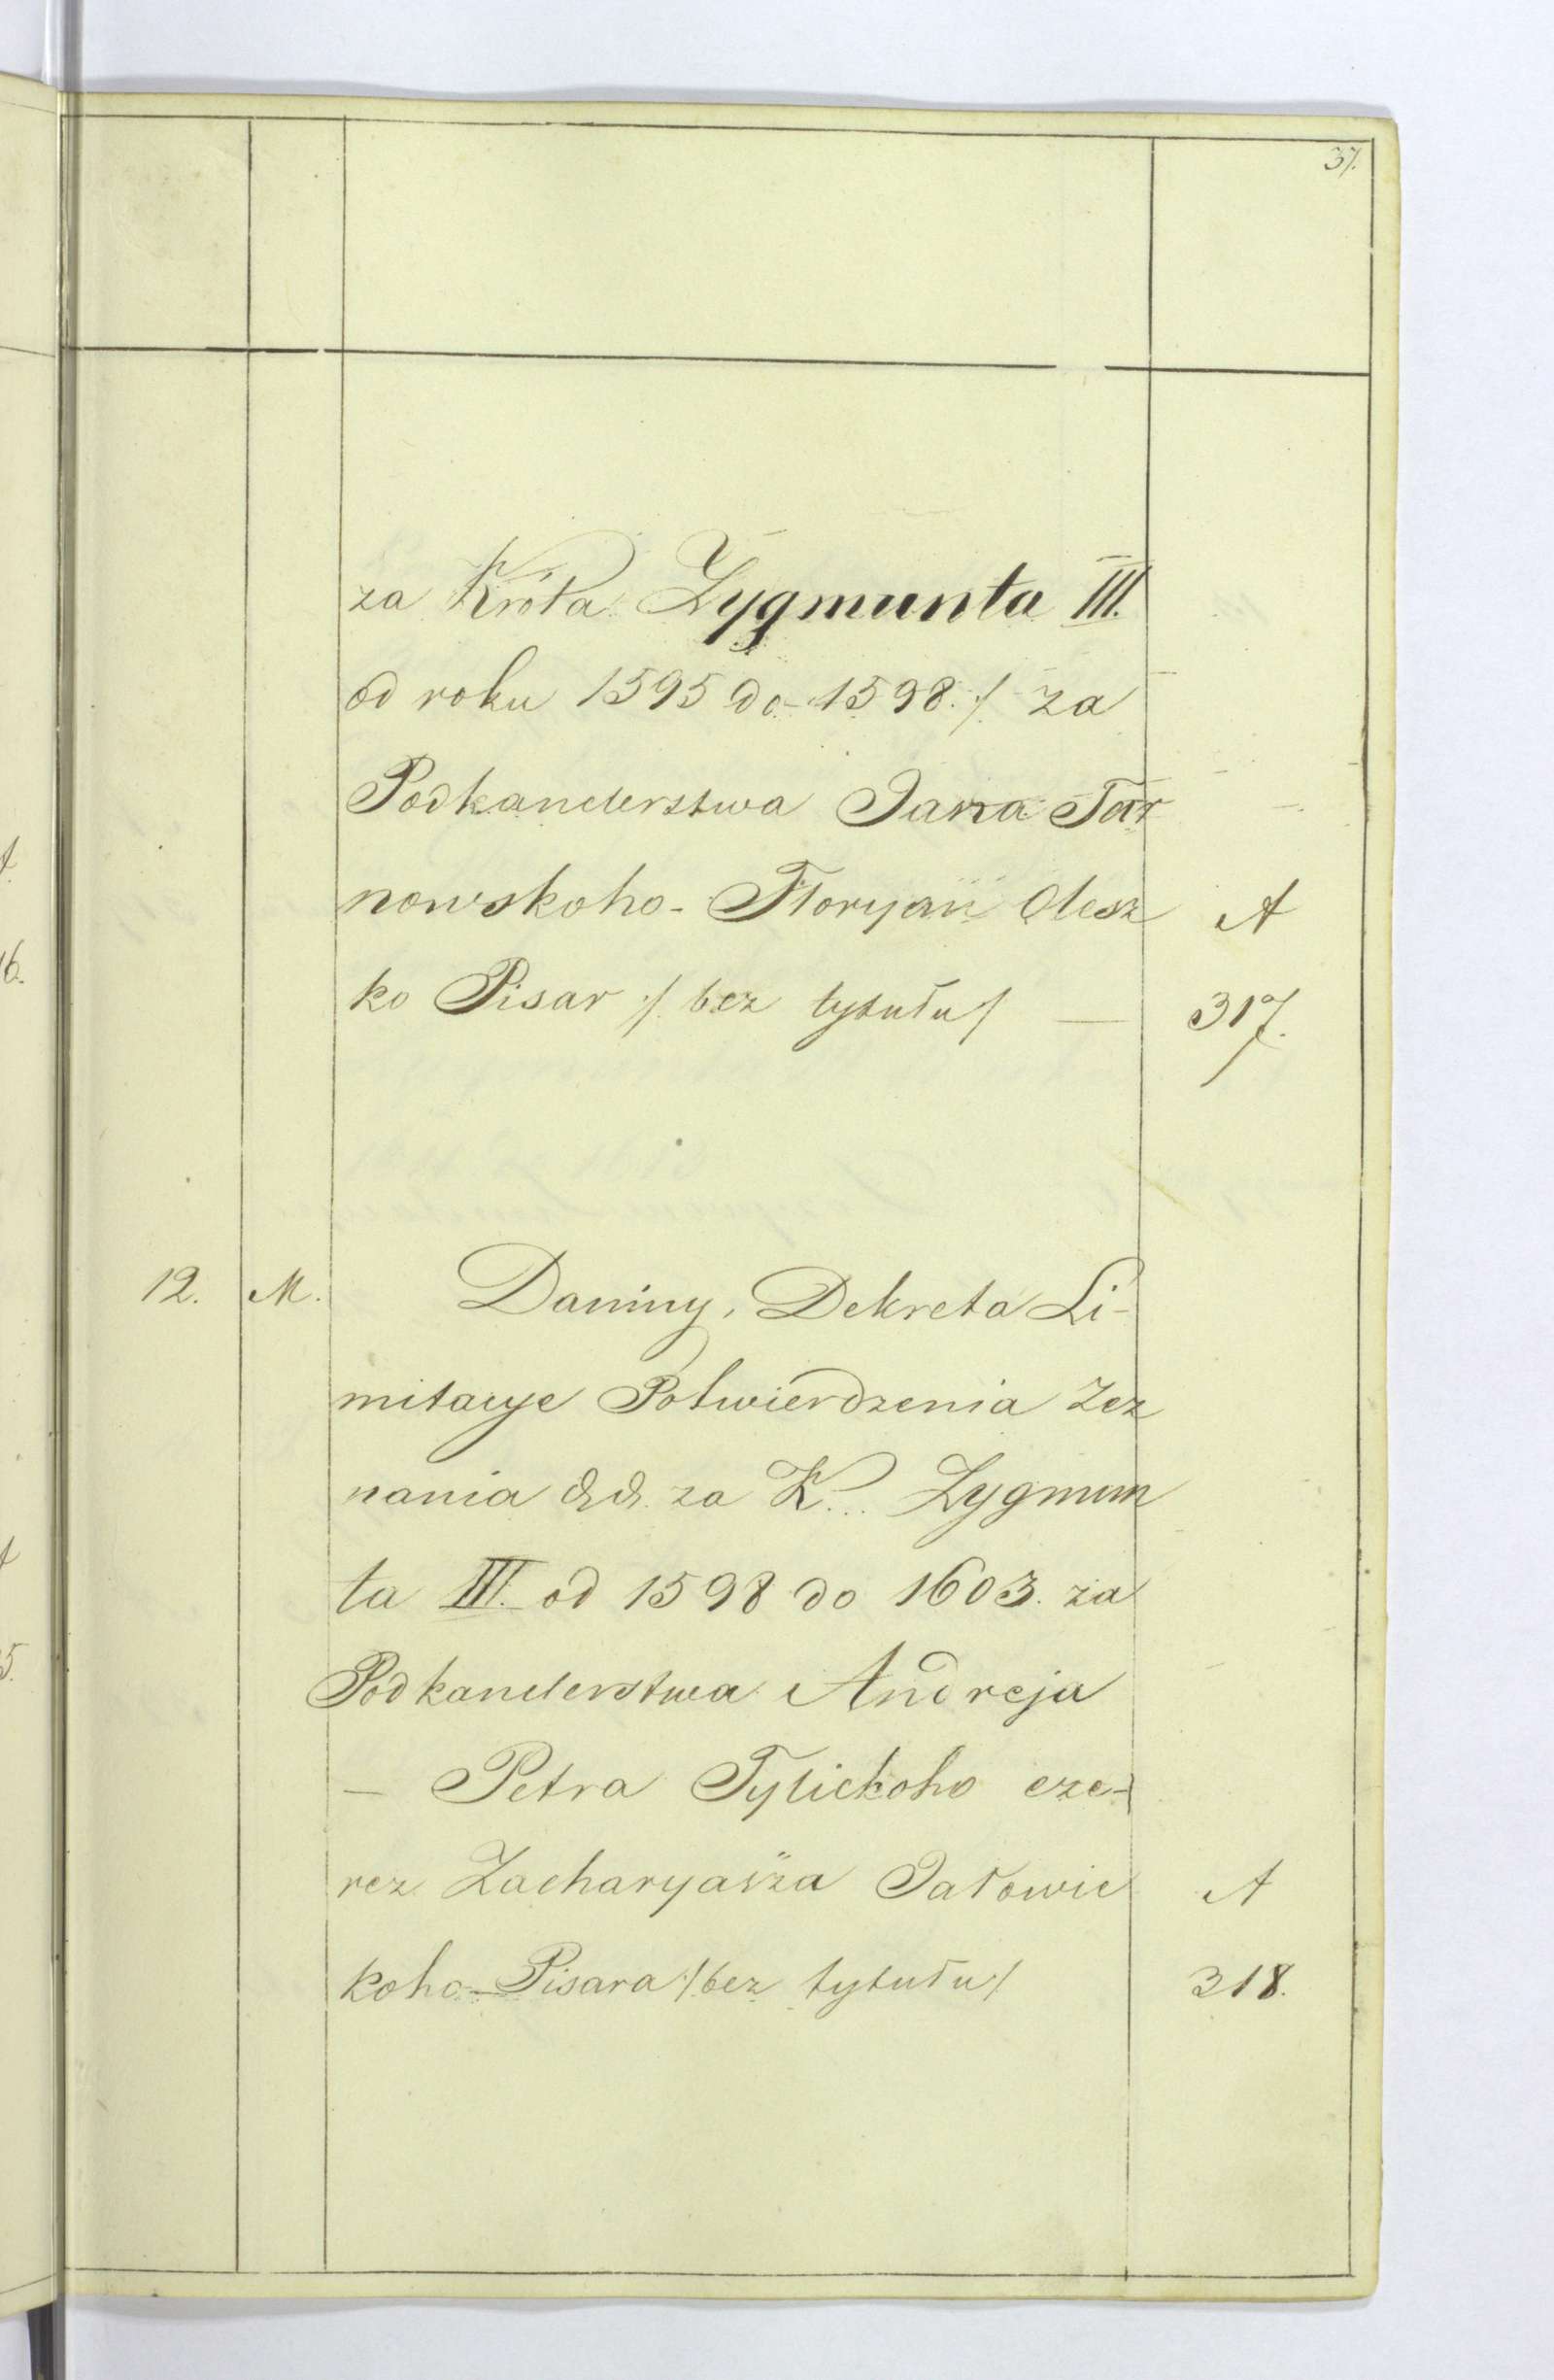 37.
za Króla Zygmunta III.
od roku 1595 do 1598. /. za
Podkanclerstwa Jana Tar
nowskoho - Floryan Olesz A
ko Pisar /. bez tytułu / — 317.
12. M. Daniny, Dekreta Li-
mitacye Potwierdzenia Zez
nania &. &. za K... Zygmun
ta III. od 1598 do 1603. za
Podkanclerstwa Andreja
— Petra Tylickoho cze-
rez Zacharyasza Jałowic A
koho - Pisara /. bez tytułu ./ 318.